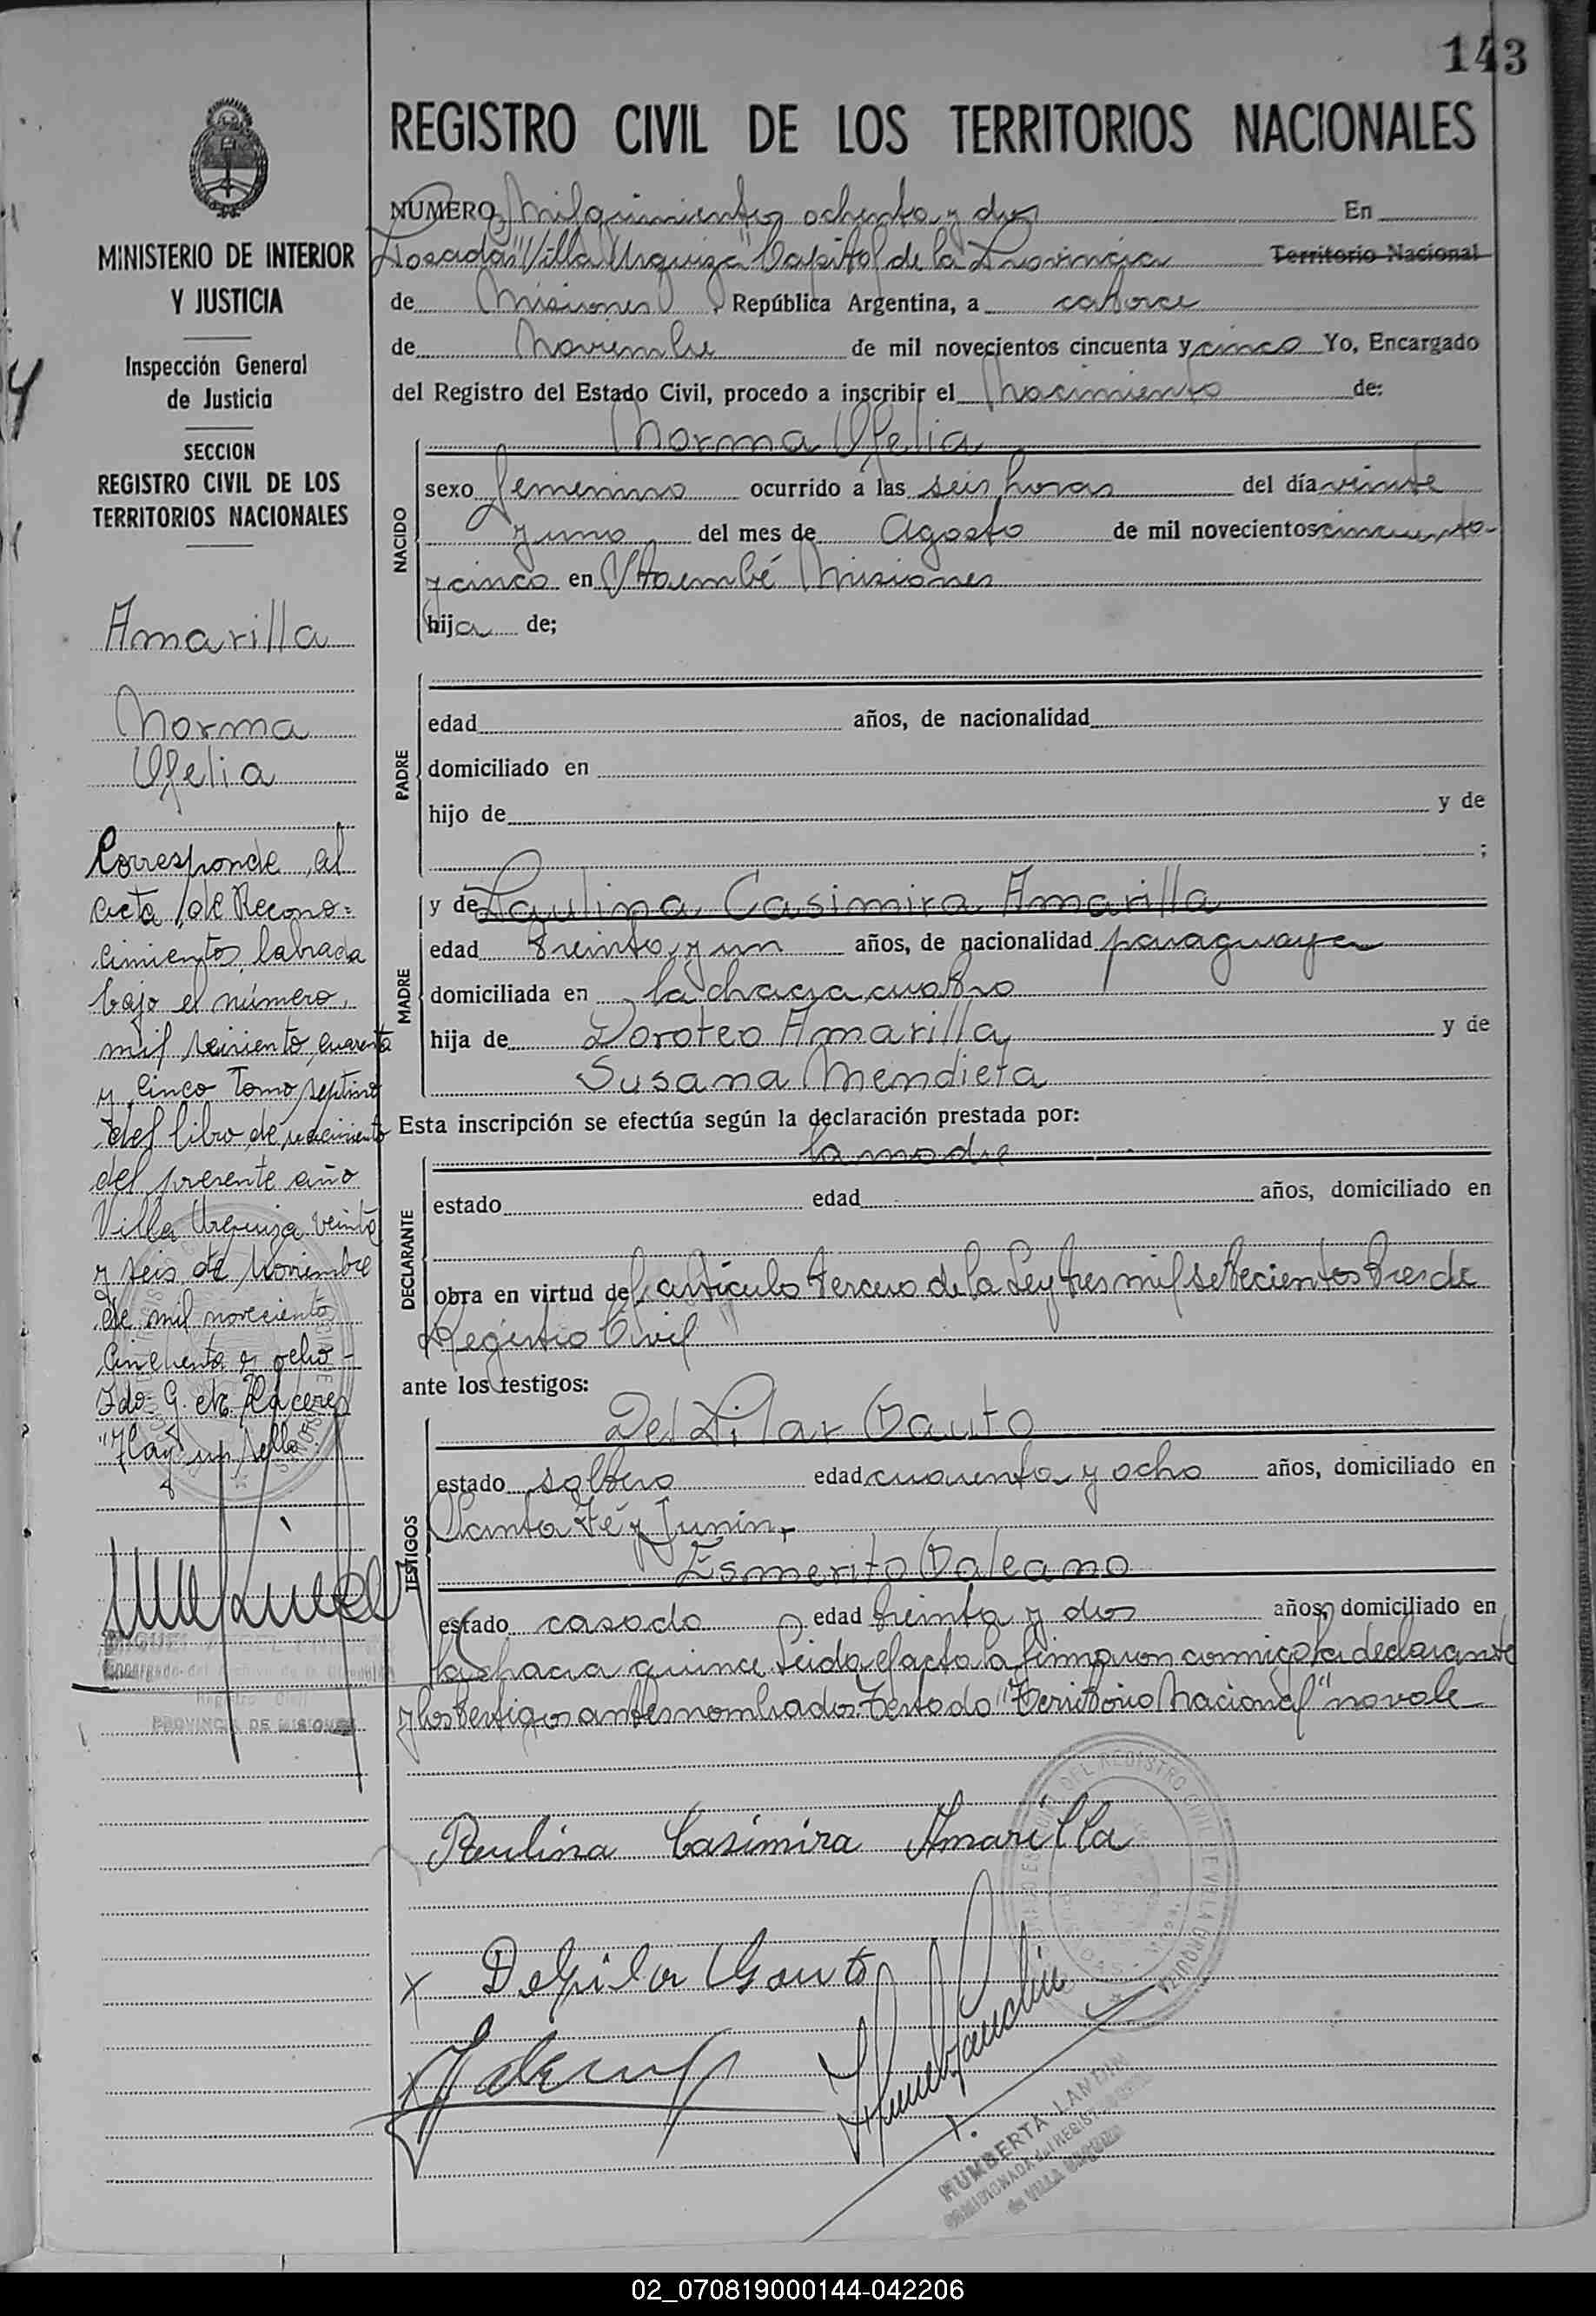 143
REGISTRO CIVIL DE LOS TERRITORIOS NACIONALES
MINISTERIO DE INTERIOR
Y JUSTICIA
Inspección General
de Justicia
SECCION
REGISTRO CIVIL DE LOS
TERRITORIOS NACIONALES
Amarilla
Norma
Ofelia
Corresponde al
acta de Recono=
cimiento labrada
bajo el número
mil seiciento cuarenta
y cinco Tomo septimo
del libro de nacimiento
del presente año
Villa Urquiza veinte
y seis de Noviembre
de mil noveciento
cincuenta y ocho -
Fdo: G. de Caceres
"Hay un sello"
PROVINCIA DE MISIONES
NUMERO Mil quinientos ochenta y dos En
Posadas "Villa Urquiza" Capital de la Provincia Territorio Nacional
de Misiones, República Argentina, a catorce
de Noviembre de mil novecientos cincuenta y cinco Yo, Encargado
del Registro del Estado Civil, procedo a inscribir el Nacimiento de:
Norma Ofelia
NACIDO
sexo femenino ocurrido a las seis horas del día veinte
y uno del mes de Agosto de mil novecientos cincuenta
y cinco en Itaembé Misiones
hija de;
PADRE
edad años, de nacionalidad
domiciliado en
hijo de y de
;
MADRE
y de Paulina Casimira Amarilla
edad treinta y un años, de nacionalidad paraguaya
domiciliada en la chacra cuatro
hija de Doroteo Amarilla y de
Susana Mendieta
Esta inscripción se efectúa según la declaración prestada por:
la madre
DECLARANTE
estado edad años, domiciliado en
obra en virtud del artículo tercero de la Ley tres mil setecientos tres de
Registro Civil
ante los testigos:
TESTIGOS
Del Pilar Bauto
estado soltero edad cuarenta y ocho años, domiciliado en
Santa Fé y Junín.
Esmerito Baleano
estado casado edad treinta y dos años, domiciliado en
la chacra quince. Leida el acta la firmaron conmigo la declarante
y los testigos antes nombrados. Testado "Territorio Nacional" no vale
Paulina Casimira Amarilla
x Delpilar Bauto
HUMBERTA LANDIN
de VILLA URQUIZA
02_070819000144-042206